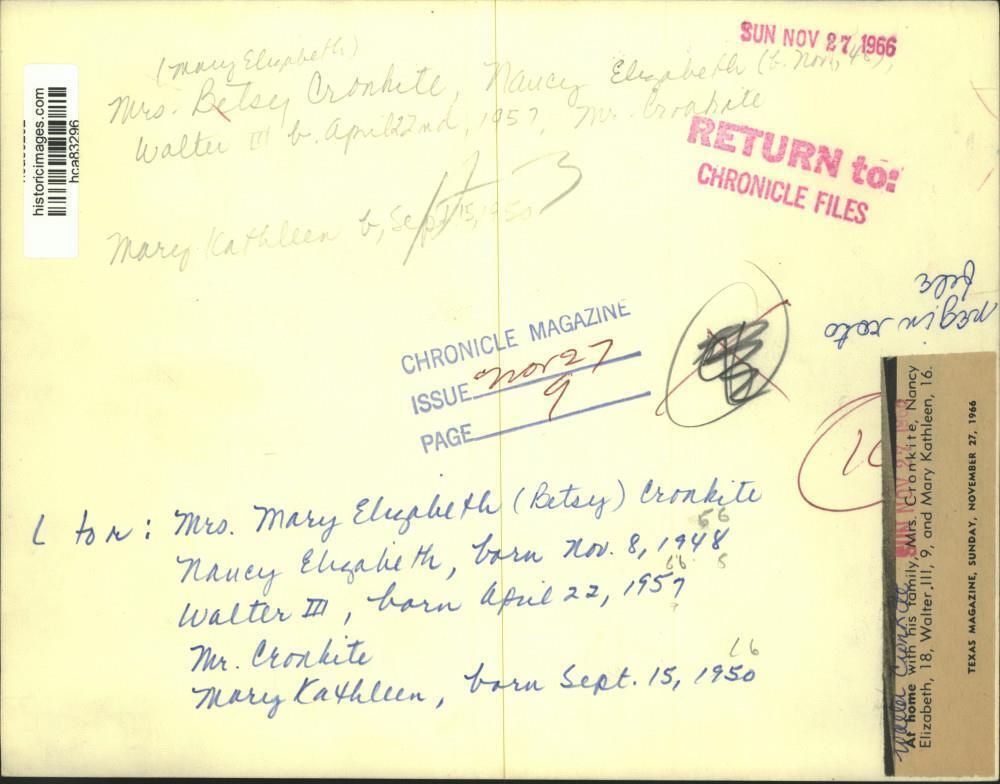 SUN NOV 27 1966
(Mary Elizabeth)
Mrs. Betsy Cronkite, Nancy Elizabeth (b. Nov, 48),
Walter III b. April 22nd, 1957, Mr. Cronkite
Mary Kathleen b, Sept. 15, 1950
RETURN to:
CHRONICLE FILES
historicimages.com
hca83296
CHRONICLE MAGAZINE
ISSUE Nov 27
PAGE 9
L to r: Mrs. Mary Elizabeth (Betsy) Cronkite
Nancy Elizabeth, born Nov. 8, 1948
Walter III, born April 22, 1957
Mr. Cronkite
Mary Kathleen, born Sept. 15, 1950
16
SUN NOV 27 1966
Walter Cronkite
At home with his family, Mrs. Cronkite, Nancy
Elizabeth, 18, Walter III, 9, and Mary Kathleen, 16.
TEXAS MAGAZINE, SUNDAY, NOVEMBER 27, 1966